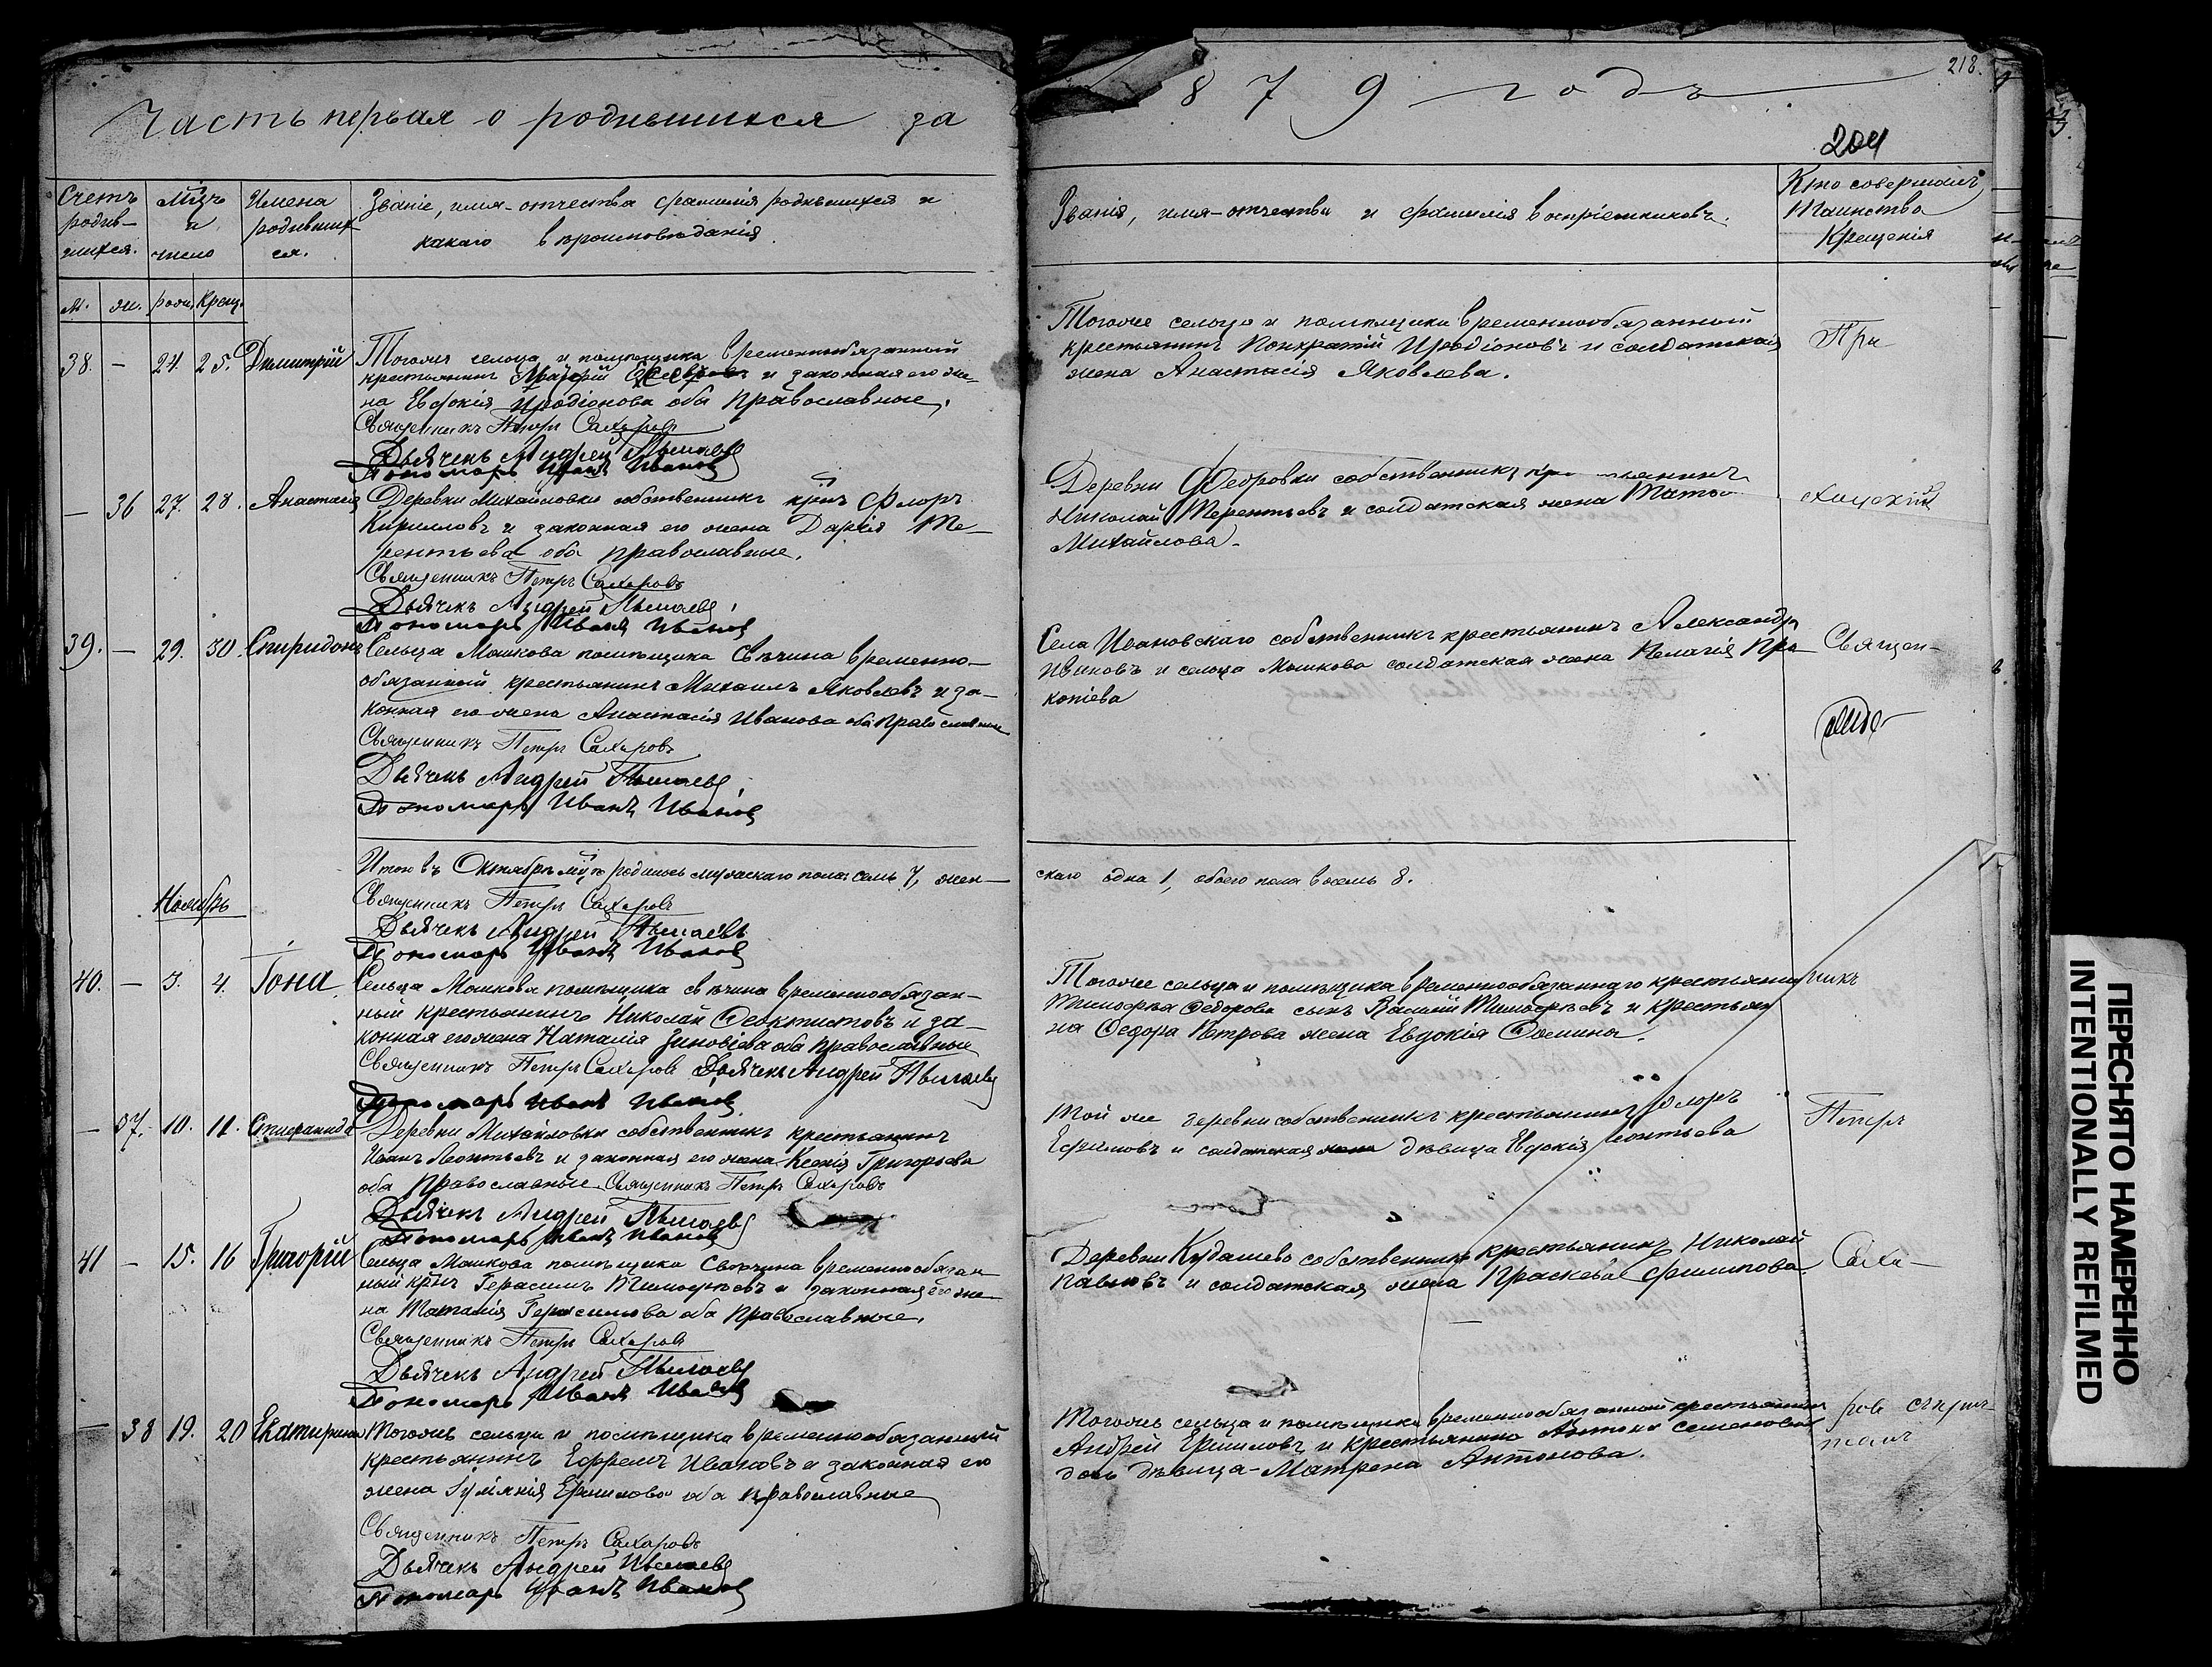 Часть первая о родившихся за
8 7 9 годъ
218.
204
Счетъ родив-шихся.
Мѣц и число
Имена родившихся.
Званіе, имя-отчества фамилія родившихся и
какаго вѣроисповѣданія.
Званія, имя-отчества и фамилія воспріемниковъ.
Кто совершалъ
Таинство
Крещенія
М. ж. рожд. Крещ.
38. - 24. 25. Димитрій
Тогоже сельца и помѣщика временнообязанный
крестьянинъ и законная его же-
на Евдокія Иродіонова оба Православные.
Священникъ Петръ Сахаровъ
Дьячекъ Андрей
Пономарь Иванъ Ивановъ
Тогоже сельца и помѣщика временнообязанный
крестьянинъ Понкратій Иродіоновъ и солдатская
жена Анастасія Яковлева.
При
- 36 27. 28. Анастасія
Деревни Михайловки собственникъ крнъ Флоръ
Кириловъ и законная его жена Дарія Те-
рентьева оба православные.
Священникъ Петръ Сахаровъ
Дьячекъ Андрей
Пономарь Иванъ Ивановъ
Деревни Федоровки собственникъ
Николай Терентьевъ и солдатская жена
Михайлова.
ходскій
39. - 29. 30. Спиридонъ
Сельца Машкова помѣщика Свѣчина временно-
обязанный крестьянинъ Михаилъ Яковлевъ и за-
конная его жена Анастасія Иванова оба православные
Священникъ Петръ Сахаровъ
Дьячекъ Андрей
Пономарь Иванъ Ивановъ
Села Ивановскаго собственникъ крестьянинъ Александръ
Ивановъ и сельца Машкова солдатская жена Пелагія Про-
копіева
Священ-
Итого въ Октябрѣ мѣцѣ родилось мужскаго пола семь 7, жен-
скаго одна 1, обоего пола восемь 8.
Священникъ Петръ Сахаровъ
Дьячекъ Андрей
Пономарь Иванъ Ивановъ
Ноябрь
40. - 3. 4. Іона.
Сельца Машкова помѣщика Свѣчина временнообязан-
ный крестьянинъ Николай Феоктистовъ и за-
конная его жена Наталія Зиновіева оба православные
Священникъ Петръ Сахаровъ Дьячекъ Андрей
Пономарь Иванъ Ивановъ
Тогоже сельца и помѣщика временнообязаннаго крестьянина
Тимофея Федорова сынъ Василій Тимофеевъ и крестьяни-
на Федора Петрова жена Евдокія Фомина.
никъ
- 37. 10. 11. Стефанида
Деревни Михайловки собственникъ крестьянинъ
Иванъ Леонтьевъ и законная его жена Ксенія Григорьева
оба Православные Священникъ Петръ Сахаровъ
Дьячекъ Андрей
Пономарь Иванъ Ивановъ
Той же деревни собственникъ крестьянинъ Флоръ
Ефимовъ и солдатская дѣвица Евдокія Леонтьева
Петръ
41 - 15. 16 Григорій
Сельца Машкова помѣщика Свѣчина временнообязан-
ный крнъ Герасимъ Тимофеевъ и законная его же-
на Герасимова оба православные.
Священникъ Петръ Сахаровъ
Дьячекъ Андрей
Пономарь Иванъ Ивановъ
Деревни Кудашева собственникъ крестьянинъ Николай
Павловъ и солдатская жена Праскева Филипова
Саха-
- 38 19. 20 Екатирина
Тогоже сельца и помѣщика временнообязанный
крестьянинъ Ефремъ Ивановъ и законная его
жена Ермилова оба православные
Священникъ Петръ Сахаровъ
Дьячекъ Андрей
Пономарь Иванъ Ивановъ
Тогоже сельца и помѣщика временнообязанный крестьянинъ
Андрей Ермиловъ и крестьянина Антона Семенова
дочь дѣвица Матрена Антонова.
ровъ съ прич-
томъ
ПЕРЕСНЯТО НАМЕРЕННО
INTENTIONALLY REFILMED